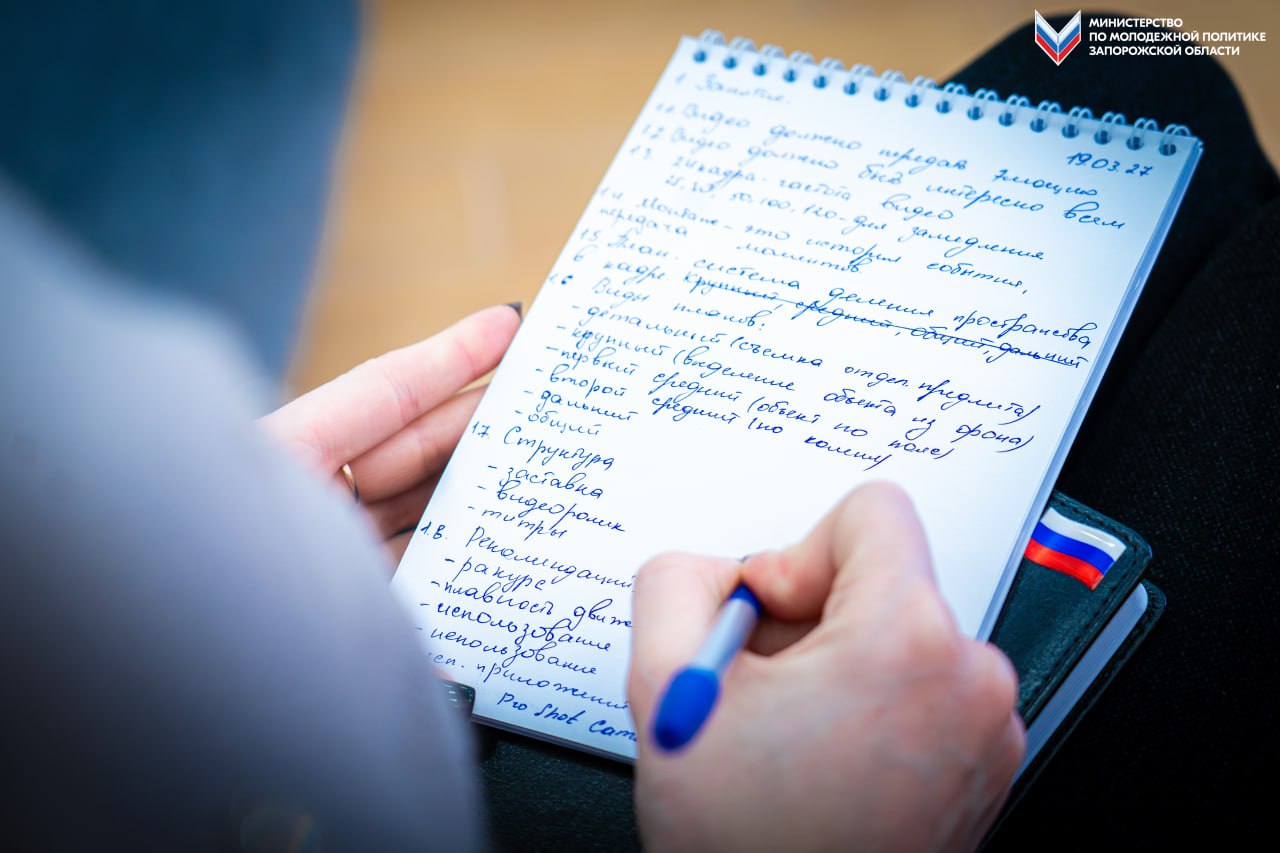 МИНИСТЕРСТВО
ПО МОЛОДЕЖНОЙ ПОЛИТИКЕ
ЗАПОРОЖСКОЙ ОБЛАСТИ
1. Занятие.
19.03.27
1.1. Видео должно передать эмоцию
1.2. Видео должно быть интересно всем
1.3. 24 кадра - частота видео
25, 50, 100, 120 - для замедления
1.4. Монтаж - это история события,
передача
1.5. План - система деления пространства
в кадре крупный, средний, общий, дальний
1.6 Виды планов:
- детальный (съемка отдел. предмета)
- крупный (выделение объекта из фона)
- первый средний (объект по пояс)
- второй средний (по колени)
- дальний
- общий
1.7. Структура
- заставка
- видеоролик
- титры
1.8. Рекомендации
- ракурс
- плавность движе
- использование
- использование
приложений
Pro Shot Cam